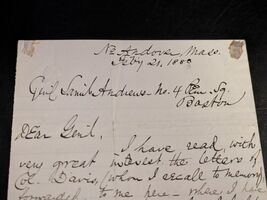 No Andover, Mass.
Feby 21, 1888
Genl. Saml. Andrews No. 4 Pem. Sq.
Boston
Dear Genl.
I have read with
very great interest the letters of
Col. Davis, (whom I recall to memory)
forwarded to me here - where I have